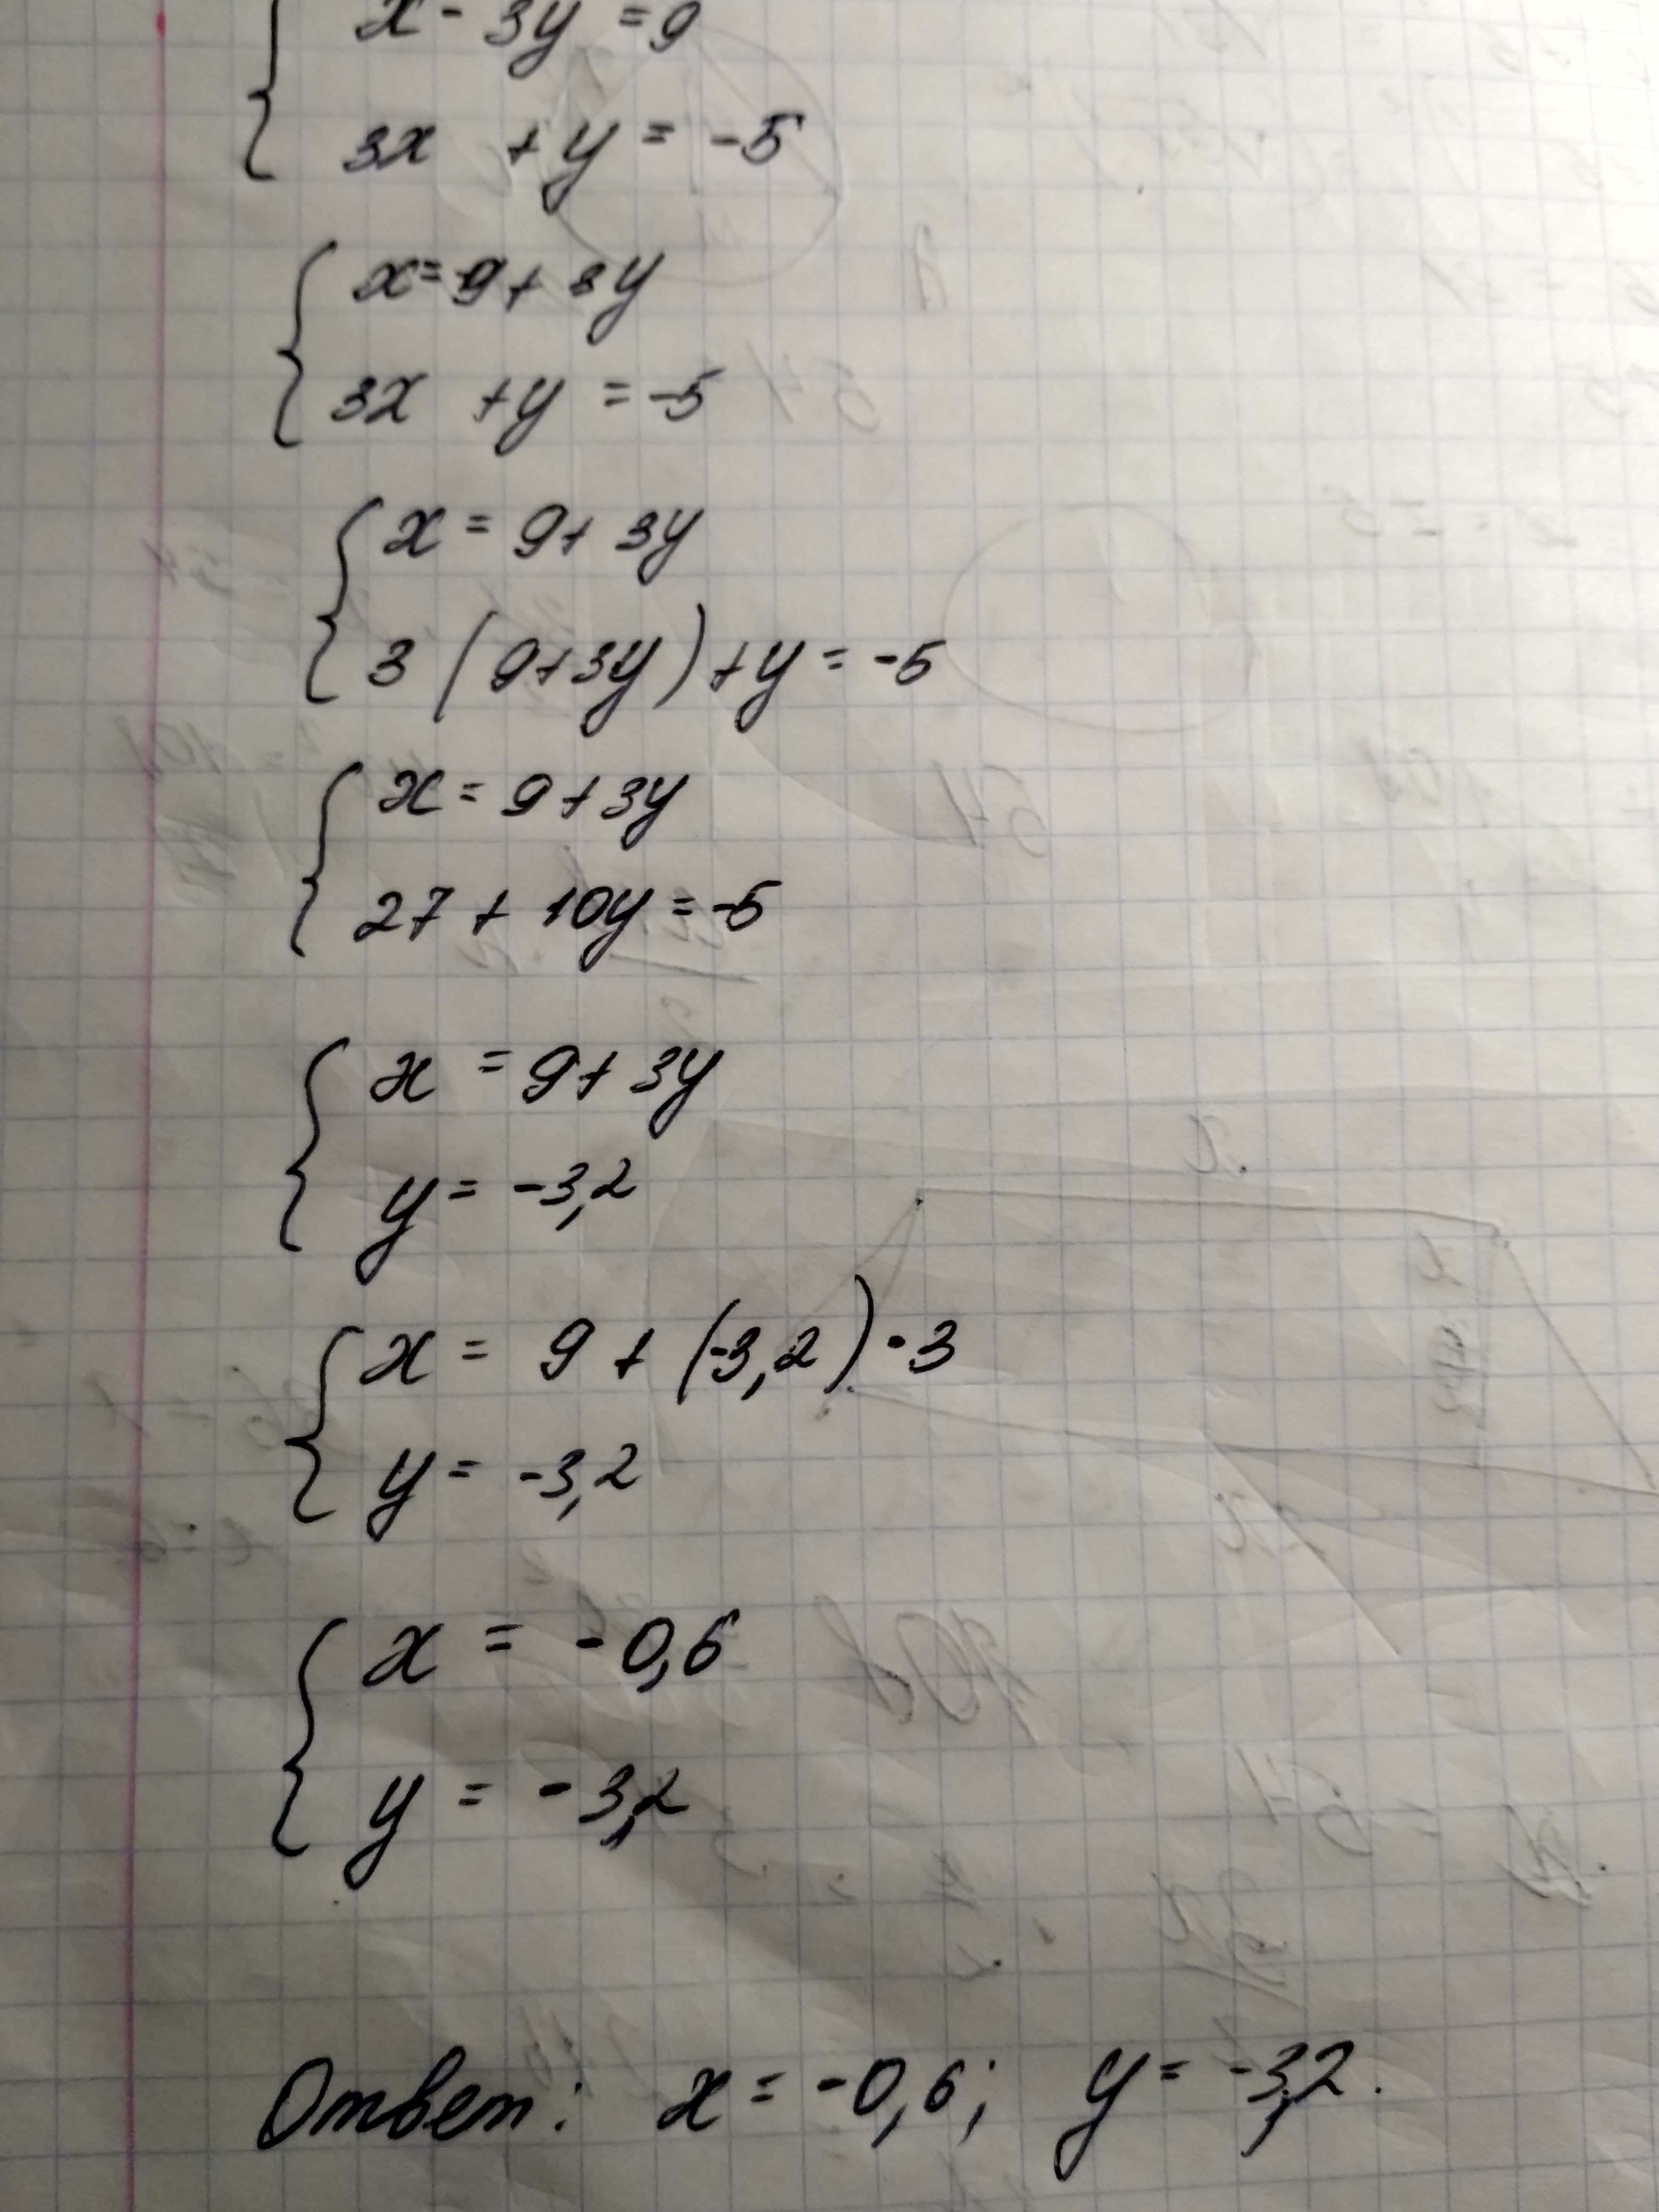 x - 3y = 9
3x + y = -5
x = 9 + 3y
3x + y = -5
x = 9 + 3y
3 (9+3y) + y = -5
x = 9 + 3y
27 + 10y = -5
x = 9 + 3y
y = -3,2
x = 9 + (-3,2) · 3
y = -3,2
x = -0,6
y = -3,2
Ответ: x = -0,6; y = -3,2.